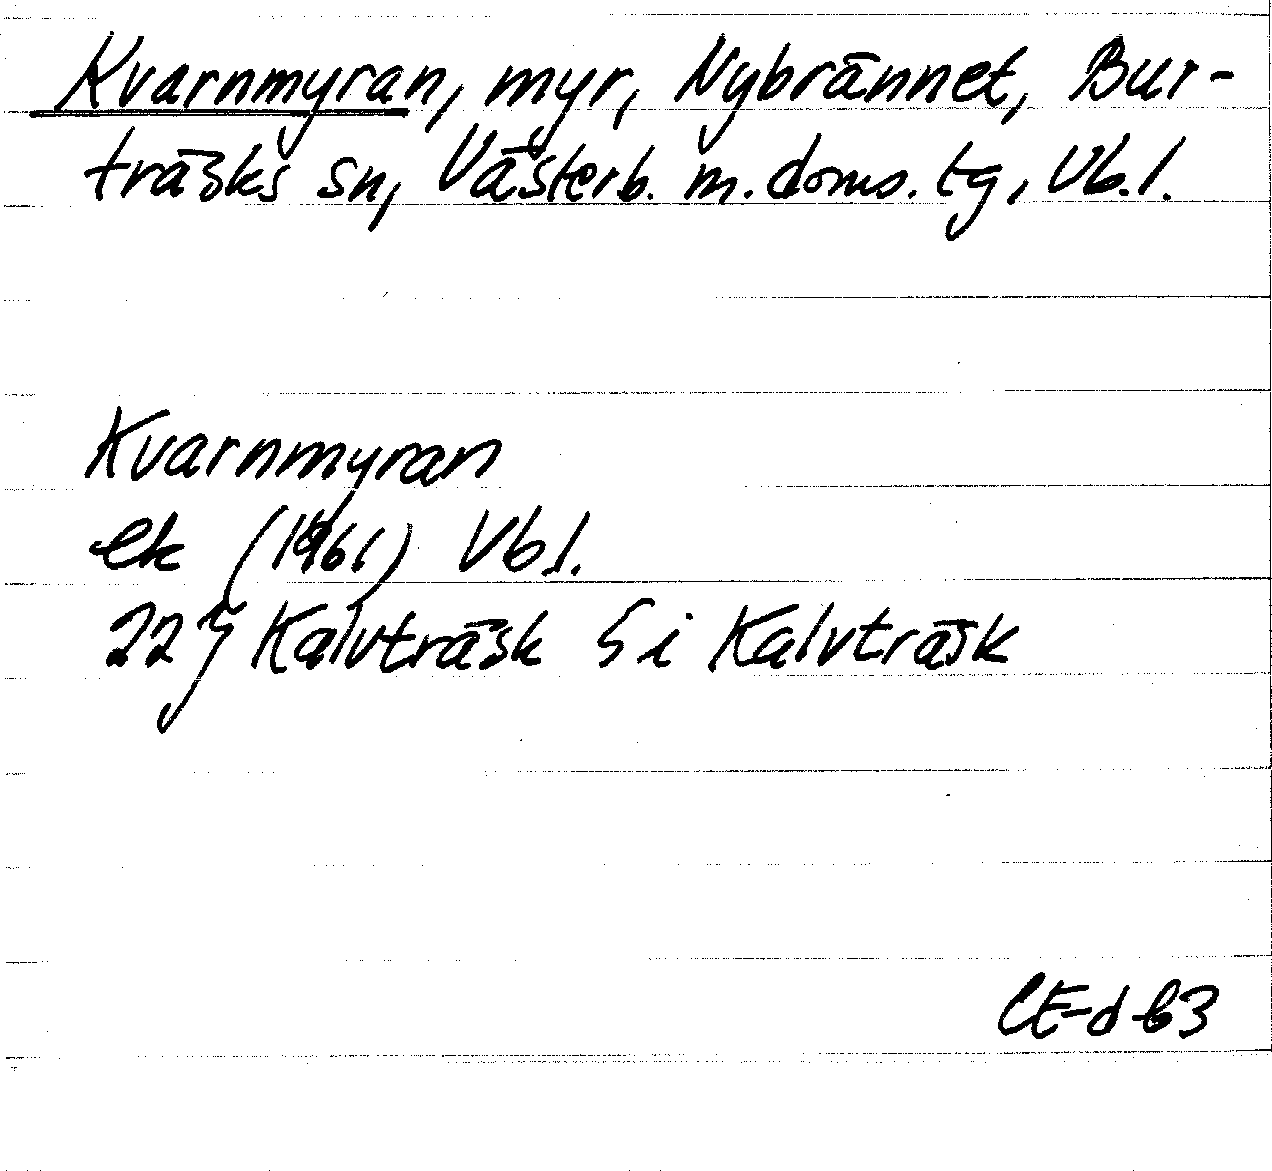 Kvarnmyran, myr, Nybrännet, Bur-
träsks sn, Västerb. m. doms. tg, Vb. l.
Kvarnmyran
ek (1961) Vb l.
22 J Kalvträsk 5 i Kalvträsk
CE-d-63